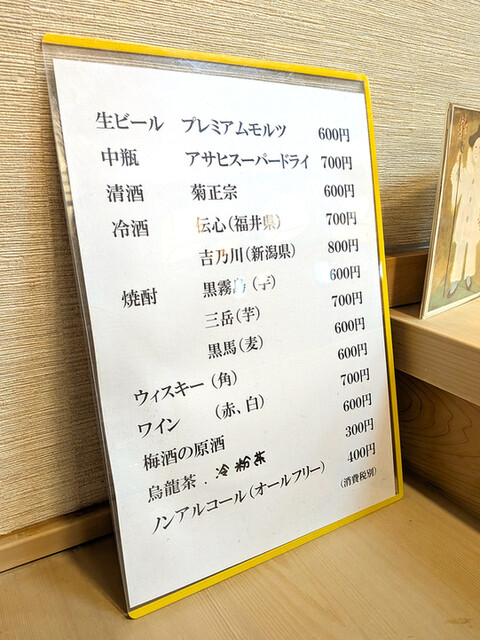 生ビール プレミアムモルツ 600円
中瓶 アサヒスーパードライ 700円
清酒 菊正宗 600円
冷酒 伝心(福井県) 700円
吉乃川(新潟県) 800円
焼酎 黒霧島(芋) 600円
三岳(芋) 700円
黒馬(麦) 600円
ウィスキー(角) 600円
ワイン (赤、白) 700円
梅酒の原酒 600円
烏龍茶．冷粉茶 300円
ノンアルコール(オールフリー) 400円
(消費税別)